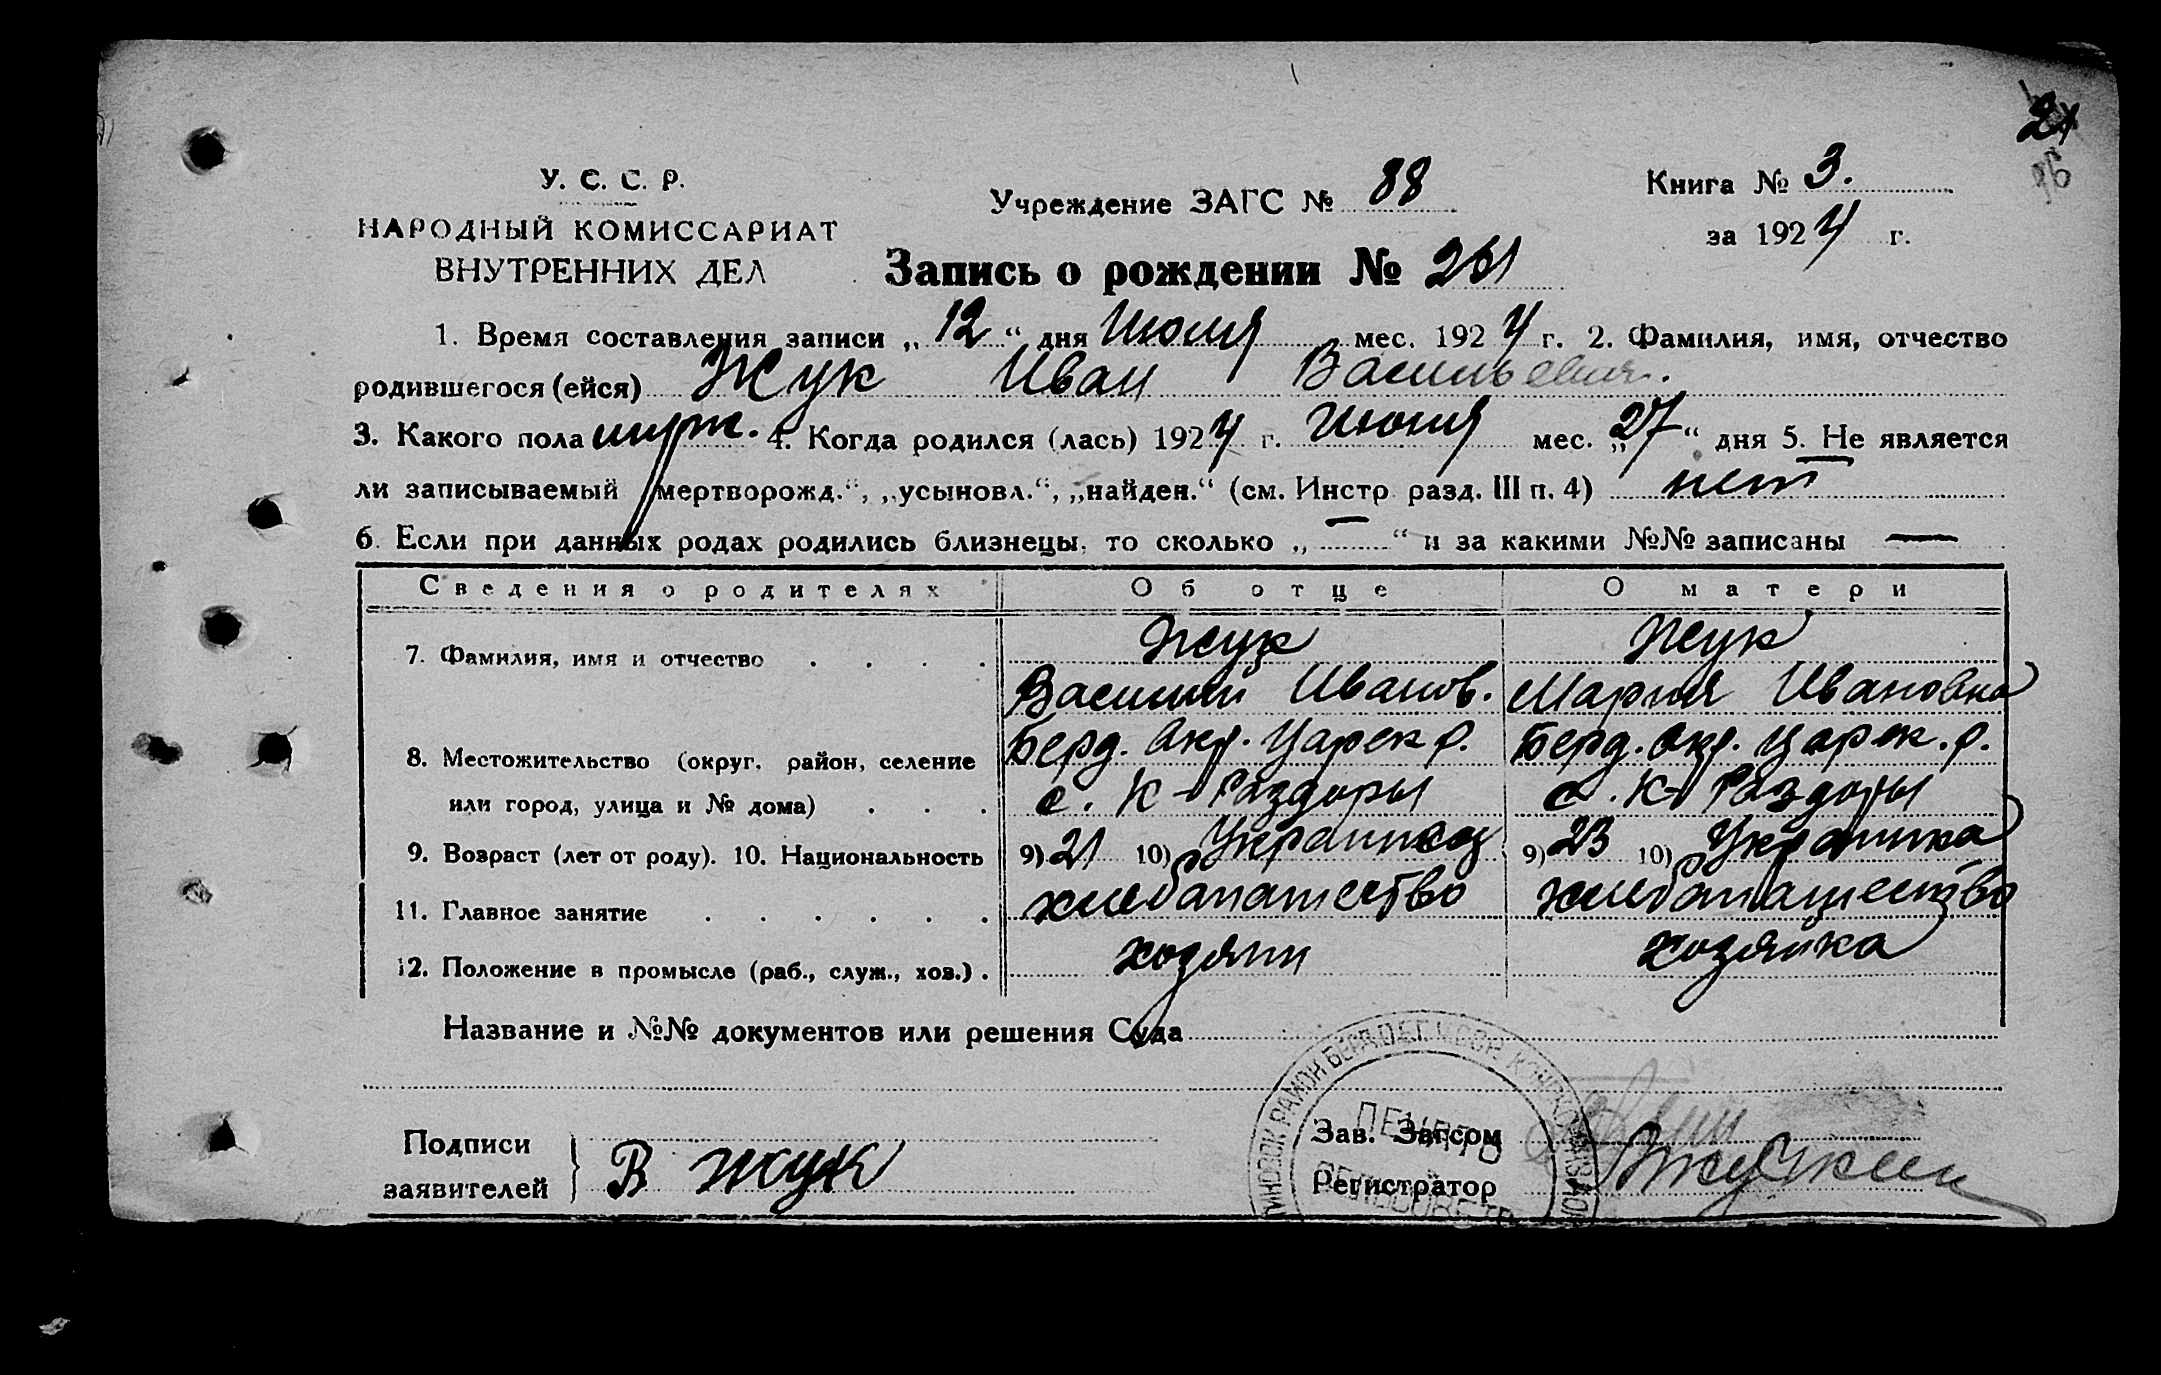 21
26
У. С. С. Р.
НАРОДНЫЙ КОМИССАРИАТ
ВНУТРЕННИХ ДЕЛ
Учреждение ЗАГС № 88
Книга № 3.
за 1924 г.
Запись о рождении № 261
1. Время составления записи „12“ дня Июля мес. 1924 г. 2. Фамилия, имя, отчество
родившегося (ейся) Жук Иван Васильевич.
3. Какого пола мужс. 4. Когда родился (лась) 1924 г. Июня мес. „27“ дня 5. Не является
ли записываемый „мертворожд.“, „усыновл.“, „найден.“ (см. Инстр. разд. III п. 4) нет
6. Если при данных родах родились близнецы, то сколько „—“ и за какими №№ записаны —
Сведения о родителях Об отце О матери
7. Фамилия, имя и отчество . . . . Жук Жук
Василий Иванов. Мария Ивановна
8. Местожительство (округ, район, селение Берд. окр. Царек р. Берд. окр. Царек. р.
или город, улица и № дома) . . . с. К-Раздоры с. К-Раздоры
9. Возраст (лет от роду). 10. Национальность 9) 21 10) Украинец 9) 23 10) Украинка
11. Главное занятие . . . . . . хлебопашество хлебопашество
12. Положение в промысле (раб., служ., хоз.) . хозяин хозяйка
Название и №№ документов или решения Суда
Подписи
заявителей } В Жук
Зав. Загсом
Регистратор
РАЙОН БЕРД
ПЕЧАТЬ